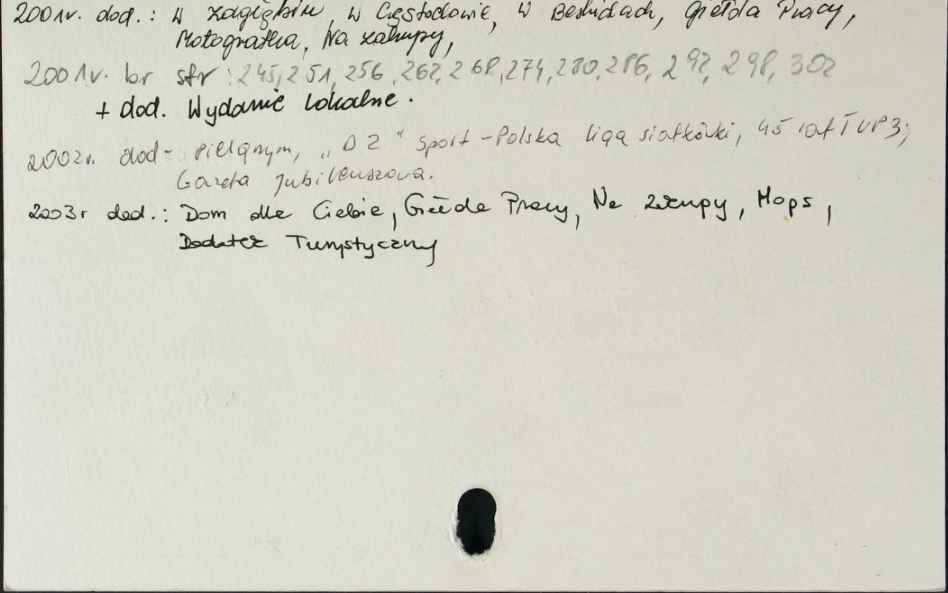 2001r. dod.: W Zagłębiu, W Częstochowie, W Beskidach, Giełda Pracy,
Motogratka, Na zakupy,
2001r. br str: 245, 251, 256, 262, 268, 274, 280, 286, 292, 298, 302
+ dod. Wydanie Lokalne.
2002r. dod- Pielgrzym, "DZ" Sport - Polska liga siatkówki, 45 lat TVP3;
Gazeta Jubileuszowa.
2003r dod.: Dom dla Ciebie, Giełda Pracy, Na zakupy, Hops,
Dodatek Turystyczny